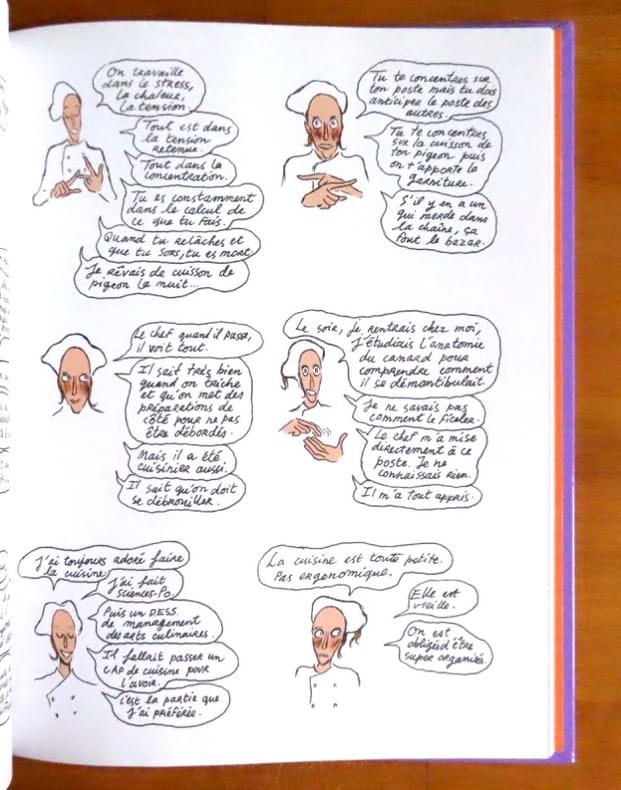 On travaille
dans le stress,
la chaleur,
la tension.
Tout est dans
la tension
retenue.
Tout dans la
concentration.
Tu es constamment
dans le calcul de
ce que tu fais.
Quand tu relâches et
que tu sors, tu es mort.
Je rêvais de cuisson de
pigeon la nuit...
Tu te concentres sur
ton poste mais tu dois
anticiper le poste des
autres.
Tu te concentres
sur la cuisson de
ton pigeon puis
on t'apporte la
garniture.
S'il y en a un
qui merde dans
la chaîne, ça
fout le bazar.
Le chef quand il passe,
il voit tout.
Il sait très bien
quand on triche
et qu'on met des
préparations de
côté pour ne pas
être débordés.
Mais il a été
cuisinier aussi.
Il sait qu'on doit
se débrouiller.
Le soir, je rentrais chez moi,
j'étudiais l'anatomie
du canard pour
comprendre comment
il se démantibulait.
Je ne savais pas
comment le ficeler.
Le chef m'a mise
directement à ce
poste. Je ne
connaissais rien.
Il m'a tout appris.
J'ai toujours adoré faire
la cuisine.
J'ai fait
sciences-Po.
Puis un DESS.
de management
des arts culinaires.
Il fallait passer un
CAP de cuisine pour
l'avoir.
C'est la partie que
j'ai préférée.
La cuisine est toute petite.
Pas ergonomique.
Elle est
vieille.
On est
obligés d'être
super organisés.